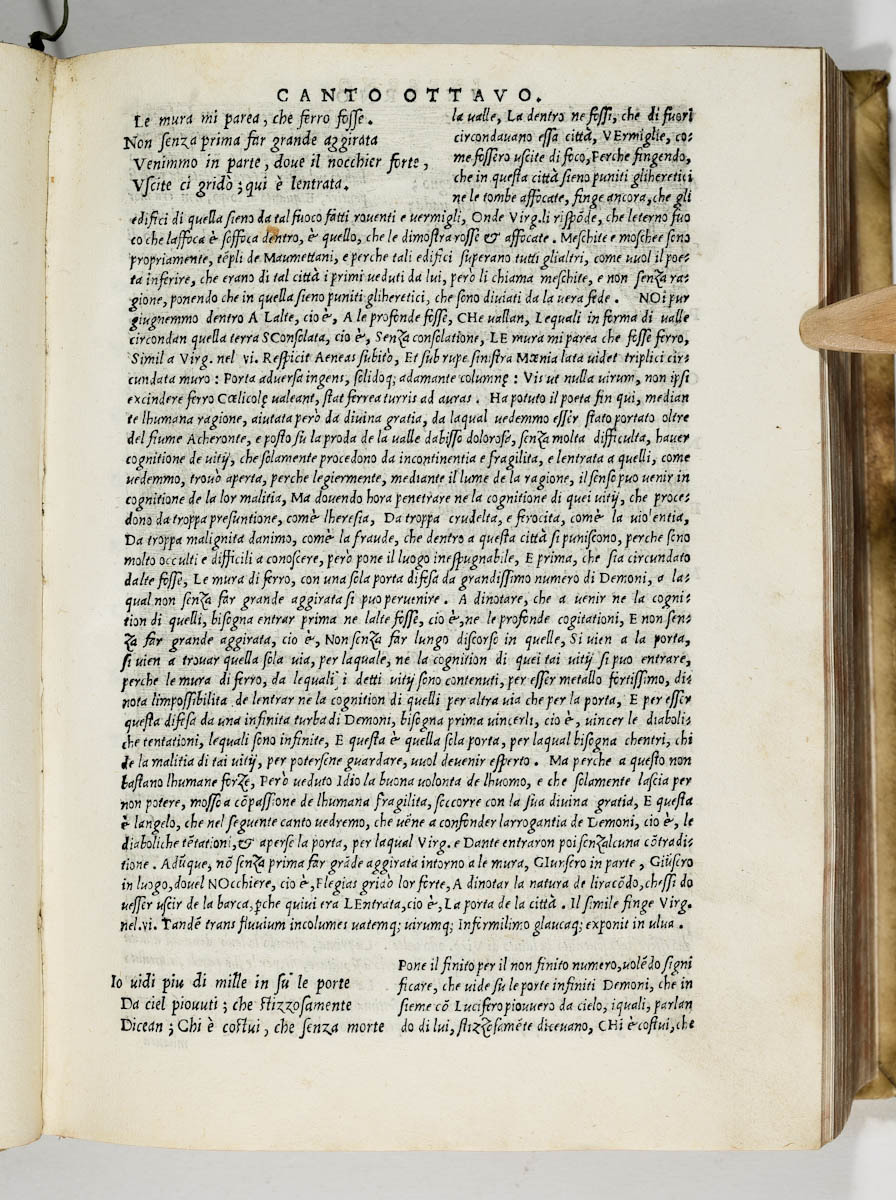 CANTO OTTAVO.
Le mura mi parea, che ferro fosse.
Non senza prima far grande aggirata
Venimmo in parte, doue il nocchier forte,
Vscite ci gridò; qui è lentrata.
la ualle, La dentro ne fossi, che di fuori
circondauano essa città, VErmiglie, co-
me fossero uscite di foco, Perche fingendo,
che in questa città sieno puniti gliheretici
ne le tombe affocate, finge ancora, che gli
edifici di quella sieno da tal fuoco fatti rouenti e uermigli, Onde Virg. li rispōde, che leterno fuo
co che laffoca è seffoca dentro, è quello, che le dimostra rosse & affocate. Meschite e moschee sono
propriamente, tēpli de Maumettani, e perche tali edifici superano tutti glialtri, come uuol il poe-
ta inferire, che erano di tal città i primi ueduti da lui, però li chiama meschite, e non senza ra-
gione, ponendo che in quella sieno puniti gliheretici, che sono diuiati da la uera fede. NOi pur
giugnemmo dentro A Lalte, cio è, A le profonde fosse, CHe uallan, Lequali in forma di ualle
circondan quella terra SConsolata, cio è, Senza consolatione, LE mura mi parea che fosse ferro,
Simil a Virg. nel vi. Respicit Aeneas subito, Et sub rupe sinistra Mœnia lata uidet triplici cir-
cundata muro: Porta aduersa ingens, solidoq; adamante columnę: Vis ut nulla uirum, non ipsi
excindere ferro Cœlicolę ualeant, stat ferrea turris ad auras. Ha potuto il poeta fin qui, median
te lhumana ragione, aiutata però da diuina gratia, da laqual uedemmo esser stato portato oltre
del fiume Acheronte, e posto sù la proda de la ualle dabisso doloroso, senza molta difficulta, hauer
cognitione de uitÿ, che solamente procedono da incontinentia e fragilita, e lentrata a quelli, come
uedemmo, trouò aperta, perche legiermente, mediante il lume de la ragione, il senso puo uenir in
cognitione de la lor malitia, Ma douendo hora penetrare ne la cognitione di quei uitÿ, che proce-
dono da troppa presuntione, comè lheresia, Da troppa crudelta, e ferocita, comè la uiolentia,
Da troppa malignita danimo, comè la fraude, che dentro a questa città si puniscono, perche sono
molto occulti e difficili a conoscere, però pone il luogo inespugnabile, E prima, che sia circundato
dalte fosse, Le mura di ferro, con una sola porta difesa da grandissimo numero di Demoni, a la-
qual non senza far grande aggirata si puo peruenire. A dinotare, che a uenir ne la cogni-
tion di quelli, bisogna entrar prima ne lalte fosse, cio è, ne le profonde cogitationi, E non sen-
za far grande aggirata, cio è, Non senza far lungo discorso in quelle, Si uien a la porta,
si uien a trouar quella sola uia, per laquale, ne la cognition di quei tai uitÿ si puo entrare,
perche le mura di ferro, da lequali i detti uitÿ sono contenuti, per esser metallo fortissimo, di-
nota limpossibilita de lentrar ne la cognition di quelli per altra uia che per la porta, E per esser
questa difesa da una infinita turba di Demoni, bisogna prima uincerli, cio è, uincer le diaboli-
che tentationi, lequali sono infinite, E questa è quella sola porta, per laqual bisogna chentri, chi
de la malitia di tai uitÿ, per potersene guardare, uuol deuenir esperto. Ma perche a questo non
bastano lhumane forze, Però ueduto Idio la buona uolonta de lhuomo, e che solamente lascia per
non potere, mosso a cōpassione de lhumana fragilita, soccorre con la sua diuina gratia, E questa
è langelo, che nel seguente canto uedremo, che uēne a confonder larrogantia de Demoni, cio è, le
diaboliche tētationi, & aperse la porta, per laqual Virg. e Dante entraron poi senzalcuna cōtradi-
tione. Adūque, nō senza prima far grāde aggirata intorno a le mura, GIunsero in parte, Giūsero
in luogo, douel NOcchiere, cio è, Flegias gridò lor forte, A dinotar la natura de liracōdo, chessi do
uesser uscir de la barca, ꝑche quiui era LEntrata, cio è, La porta de la città. Il simile finge Virg.
nel.vi. Tandē trans fluuium incolumes uatemq; uirumq; Informi limo glaucaq; exponit in ulua.
Io uidi piu di mille in su le porte
Da ciel piouuti; che stizzosamente
Dicean; Chi è costui, che senza morte
Pone il finito per il non finito numero, uolēdo signi
ficare, che uide su le porte infiniti Demoni, che in
sieme cō Lucifero piouuero da cielo, iquali, parlan
do di lui, stizzosamēte diceuano, CHi è costui, che